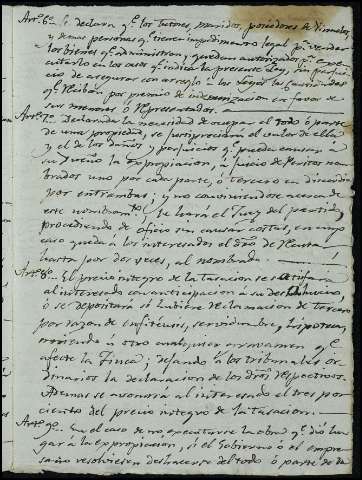 Artº 6º Se declara qe los tutores, maridos, poseedores de vinculos,
y demas personas qe tienen impedimento legal pa vender
los bienes qe administran, quedan autorizados pa eje-
cutarlo en los casos qe indica la presente Ley, sin perjui-
cio de asegurar con arreglo a las Leyes las cantidades
qe reciban por premio de indemnizacion en favor de
sus menores ó representados.
Artº 7º Declarada la necesidad de ocupar el todo ó parte
de una propiedad, se justipreciará el valor de ella
y el de los daños y perjuicios qe pueda causar á
su Dueño la expropiacion, á juicio de Peritos nom-
brados uno por cada parte, ó tercero en discordia
por entrambas; y no conviniendose acerca de
este nombramto le hará el Juez del partido,
procediendo de oficio sin causar costas, en cuyo
caso queda á los interesados el dro de recusar
hasta por dos veces, al nombrado.
Artº 8º El precio integro de la tasacion se satisfará
al interesado con anticipacion á su deshaucio,
ó se depositará si hubiere reclamacion de tercero
por razon de enfiteusis, servidumbre, hipoteca,
arriendo ú otro cualquier gravamen qe
afecte la finca; dejando á los tribunales or-
dinarios la declaracion de los dros respectivos.
Ademas se abonará al interesado el tres por
ciento del precio integro de la tasacion.
Artº 9º En el caso de no ejecutarse la obra qe dió lu-
gar á la expropiacion, si el Gobierno ó el empre-
sario resolviesen deshacerse del todo ó parte de la